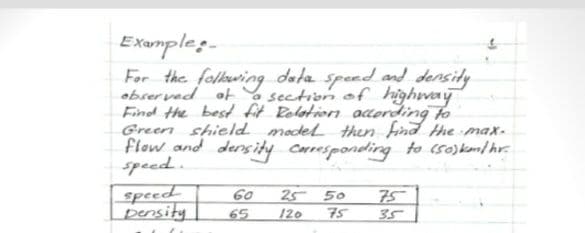 Example:-
For the following data speed and density
observed at a section of highway
Find the best fit Relation according to
Green shield model then find the max.
flow and density corresponding to (50)km/hr.
speed.
speed 60 25 50 75
Density 65 120 75 35